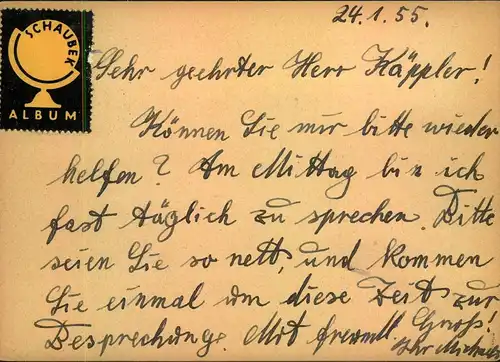 SCHAUBEK
ALBUM
24.1.55.
Sehr geehrter Herr Käppler!
Können Sie mir bitte wieder
helfen? Am Mittag bin ich
fast täglich zu sprechen. Bitte
seien Sie so nett, und kommen
Sie einmal um diese Zeit zur
Besprechunge. Mit freundl. Gruß!
Ihr